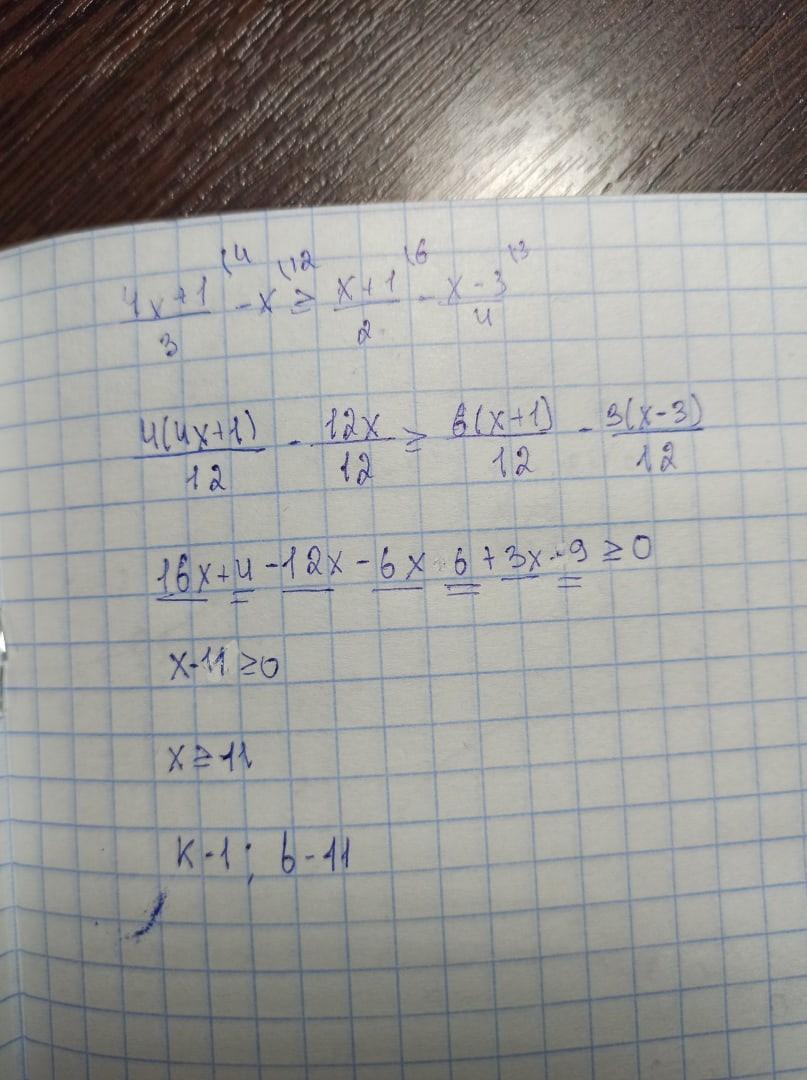 (4x+1)/3 \4 - x \12 ≥ (x+1)/2 \6 - (x-3)/4 \3
4(4x+1)/12 - 12x/12 ≥ 6(x+1)/12 - 3(x-3)/12
16x+4-12x-6x-6+3x-9≥0
x-11≥0
x≥11
k-1; b-11